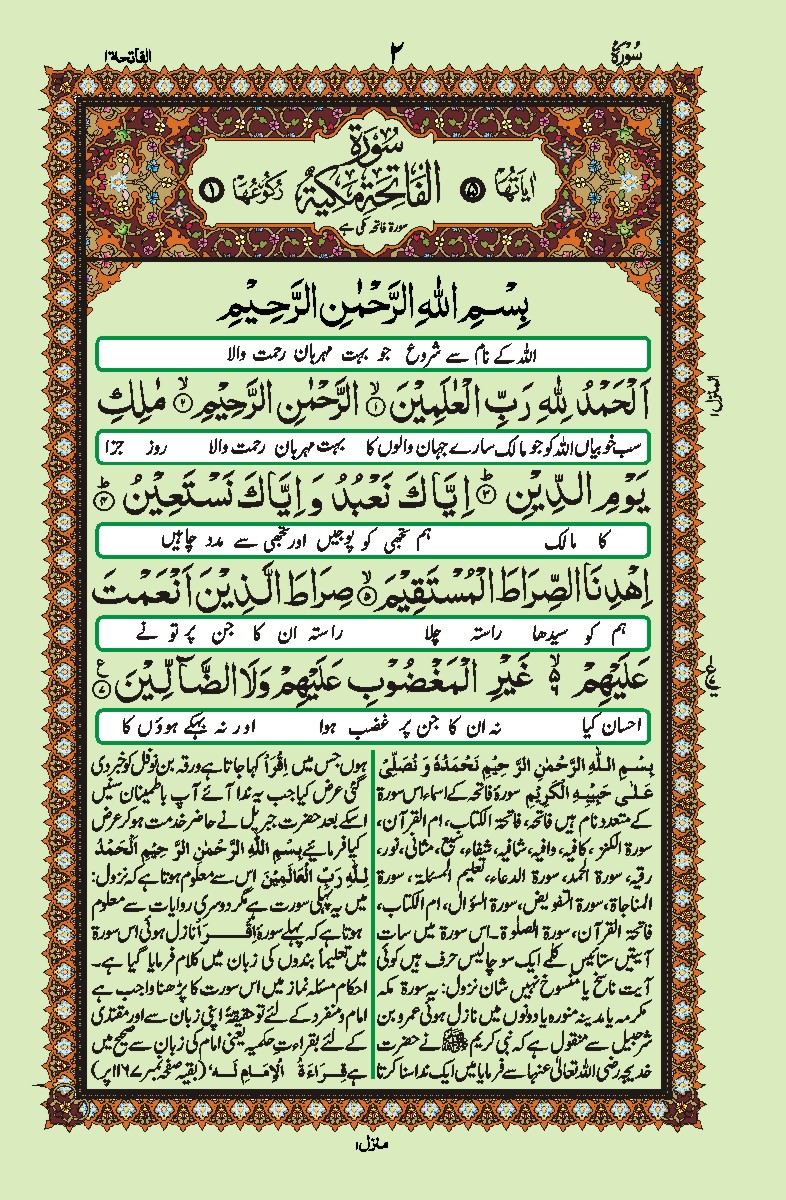 سُوْرَۃُ
۲
الفاتحۃ۱
سُوْرَۃُ
اٰیَاتُهَا ۵ الْفَاتِحَۃِ مَكِّیَّۃٌ رُكُوْعُهَا ۱
سورۃ فاتحہ مکی ہے
بِسْمِ اللّٰهِ الرَّحْمٰنِ الرَّحِیْمِ
اللہ کے نام سے شروع جو بہت مہربان رحمت والا
اَلْحَمْدُ لِلّٰهِ رَبِّ الْعٰلَمِیْنَ ۙ۱ الرَّحْمٰنِ الرَّحِیْمِ ۙ۲ مٰلِكِ
سب خوبیاں اللہ کو جو مالک سارے جہان والوں کا بہت مہربان رحمت والا روز جزا
یَوْمِ الدِّیْنِ ؕ۳ اِیَّاكَ نَعْبُدُ وَ اِیَّاكَ نَسْتَعِیْنُ ؕ۴
کا مالک ہم تجھی کو پوجیں اور تجھی سے مدد چاہیں
اِهْدِنَا الصِّرَاطَ الْمُسْتَقِیْمَ ۙ۵ صِرَاطَ الَّذِیْنَ اَنْعَمْتَ
ہم کو سیدھا راستہ چلا راستہ ان کا جن پر تو نے
عَلَیْهِمْ ۙ۶ غَیْرِ الْمَغْضُوْبِ عَلَیْهِمْ وَلَا الضَّآلِّیْنَ
احسان کیا نہ ان کا جن پر غضب ہوا اور نہ بہکے ہوؤں کا
بِسْمِ اللّٰهِ الرَّحْمٰنِ الرَّحِیْمِ نَحْمَدُهٗ وَ نُصَلِّیْ
عَلٰی حَبِیْبِهِ الْكَرِیْمِ سورۂ فاتحہ کے اسماء اس سورۃ
کے متعدد نام ہیں فاتحہ، فاتحۃ الکتاب، ام القرآن،
سورۃ الکنز، کافیہ، وافیہ، شافیہ، شفاء، سبع مثانی، نور،
رقیہ، سورۃ الحمد، سورۃ الدعاء، تعلیم المسئلۃ، سورۃ
المناجاۃ، سورۃ التفویض، سورۃ السؤال، ام الکتاب،
فاتحۃ القرآن، سورۃ الصلوٰۃ۔ اس سورۃ میں سات
آیتیں ستائیس کلمے ایک سو چالیس حرف ہیں کوئی
آیت ناسخ یا منسوخ نہیں شان نزول: یہ سورۃ مکہ
مکرمہ یا مدینہ منورہ یا دونوں میں نازل ہوئی عمرو بن
شرحبیل سے منقول ہے کہ نبی کریم ﷺ نے حضرت
خدیجہ رضی اللہ تعالیٰ عنہا سے فرمایا میں ایک ندا سنا کرتا
ہوں جس میں اِقْرَأْ کہا جاتا ہے ورقہ بن نوفل کو خبر دی
گئی عرض کیا جب یہ ندا آئے آپ باطمینان سنیں
اسکے بعد حضرت جبریل نے حاضر خدمت ہو کر عرض
کیا فرمائیے بِسْمِ اللّٰهِ الرَّحْمٰنِ الرَّحِیْمِ اَلْحَمْدُ
لِلّٰهِ رَبِّ الْعَالَمِیْنَ اس سے معلوم ہوتا ہے کہ نزول:
میں یہ پہلی سورت ہے مگر دوسری روایات سے معلوم
ہوتا ہے کہ پہلے سورۂ اِقْرَأْ نازل ہوئی اس سورۃ
میں تعلیماً بندوں کی زبان میں کلام فرمایا گیا ہے۔
احکام مسئلہ نماز میں اس سورت کا پڑھنا واجب ہے
امام و منفرد کے لئے تو حقیقۃً اپنی زبان سے اور مقتدی
کے لئے بقراءت حکمیہ یعنی امام کی زبان سے صحیح میں
ہے قِرَاءَةُ الْاِمَامِ لَهٗ (بقیہ صفحہ نمبر ۱۱۶۷ پر)
المنزل۱
منزل۱